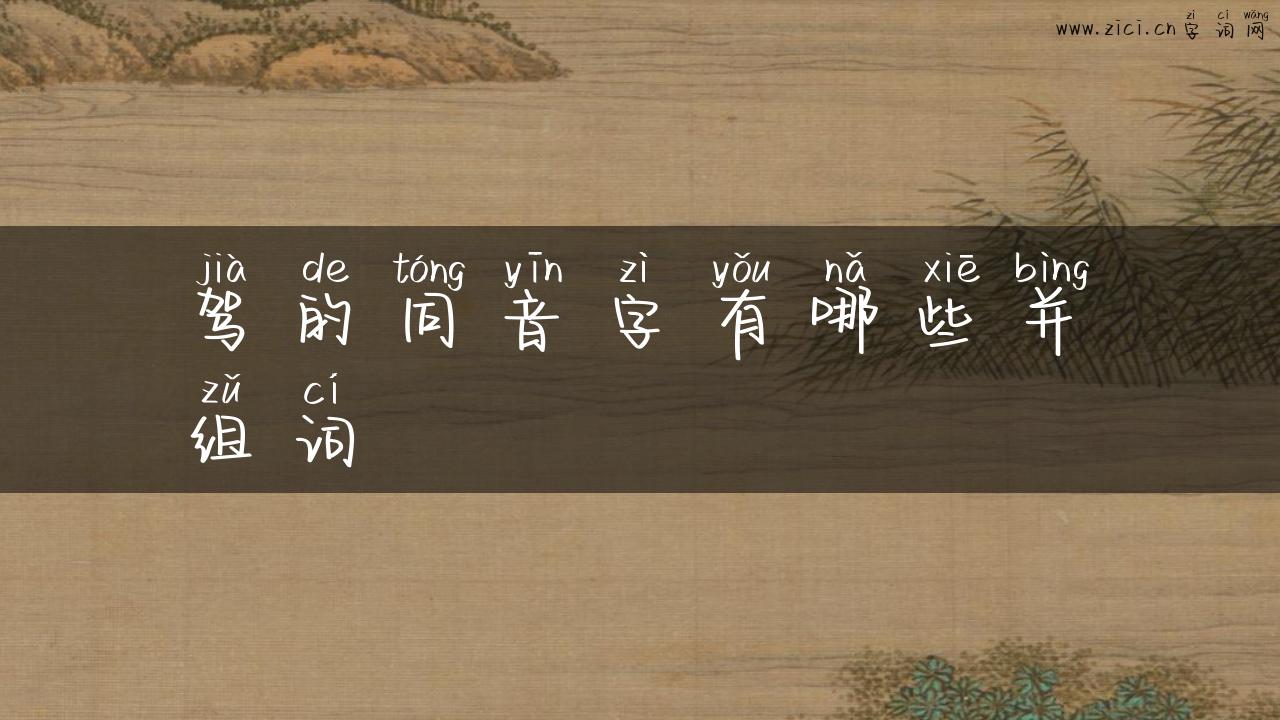 zì cí wǎng
www.zici.cn 字词网
jià de tóng yīn zì yǒu nǎ xiē bìng
驾的同音字有哪些并
zǔ cí
组词